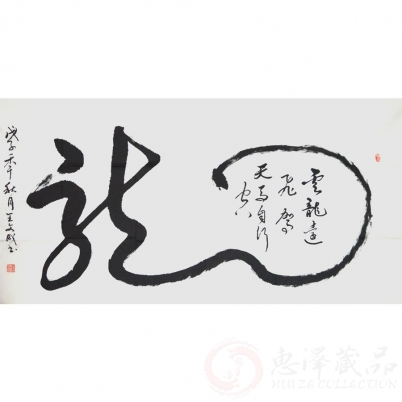 雲龍遠
飛駕
天馬自行
空
龍
年秋月
惠澤藏品
HUIZE COLLECTION